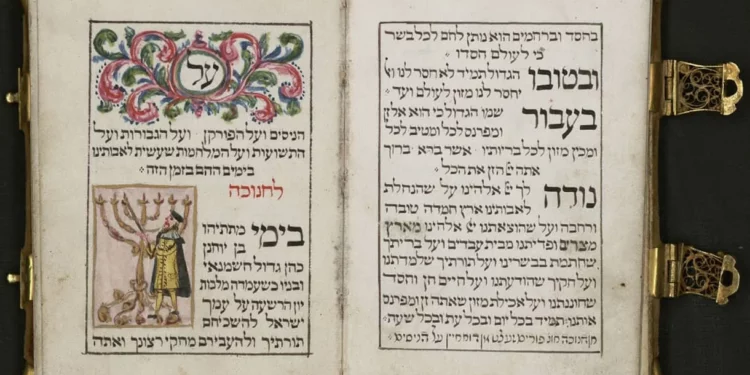 בחסד וברחמים הוא נותן לחם לכל בשר
כי לעולם חסדו
ובטובו הגדול תמיד לא חסר לנו ואל
יחסר לנו מזון לעולם ועד
בעבור שמו הגדול כי הוא אל זן
ומפרנס לכל ומטיב לכל
ומכין מזון לכל בריותיו אשר ברא ברוך
אתה הזן את הכל
נודה לך אלהינו על שהנחלת
לאבותינו ארץ חמדה טובה
ורחבה ועל שהוצאתנו אלהינו מארץ
מצרים ופדיתנו מבית עבדים ועל בריתך
שחתמת בבשרינו ועל תורתיך שלמדתנו
ועל חקיך שהודעתנו ועל חיים חן וחסד
שחוננתנו ועל אכילת מזון שאתה זן ומפרנס
אותנו תמיד בכל יום ובכל עת ובכל שעה
על הניסים
על
הניסים ועל הפורקן ועל הגבורות ועל
התשועות ועל המלחמות שעשית לאבותינו
בימים ההם בזמן הזה
לחנוכה
בימי מתתיהו
בן יוחנן
כהן גדול חשמנאי
ובניו כשעמדה מלכות
יון הרשעה על עמך
ישראל להשכיחם
תורתיך ולהעבירם מחקי רצונך ואתה